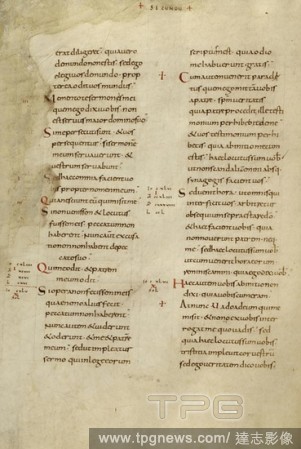 SECUNDU
erat diligeret quia uero
demundo nonestis sedego
elegiuos demundo prop
terea odit uos mundus
Mementote sermonis mei
quemego dixi uobis non
est seruus maior domino suo
Sime persecutisunt & uos
persequentur si sermone
meum seruauerunt &
uestrum seruabunt
Sed haec omnia facient uobis
propter nomen meum
Quia nesciunt eum qui misit me
Sinonuenissem & locutus
fuissem eis peccatum non
haberent Nunc excusa
tionem non habent depec
catosuo
Quime odit & patrem
meum odit
Siopera non fecissem ineis
quae nemo alius fecit
peccatum non haberent
Nunc autem & uiderunt
& oderunt & me & patrem
meum sed ut impleatur
sermo quiinlege eorum
scriptus est quia odio
me habuerunt gratis
Cum autem uenerit
quem ego mittam uobis
apatre spm ueritatis
qui apatre procedit ille testi
monium perhibebit deme
& uos testimonium perhi
betis quia abinitio mecum
estis haec locutus sum uobis
utnon scandalizemini abs
synagogis facient uos
Sed uenit hora ut omnis qui
interficit uos arbitretur
obsequium se praestare do
& haec facient uobis quia
non nouerunt patrem ne
que me sed haec locutus sum uobis
ut cum uenerit hora eorum
reminiscamini quia ego dixi uobis
Haec autem uobis abinitio non
dixi quia uobiscum eram
At nunc uado ad eum qui me
misit & nemo ex uobis inter
rogat me quo uadis sed
quia haec locutus sum uobis
tristitia impleuit cor uestru
sed ego ueritatem dico uobis
TPG
www.tpgnews.com/達志影像